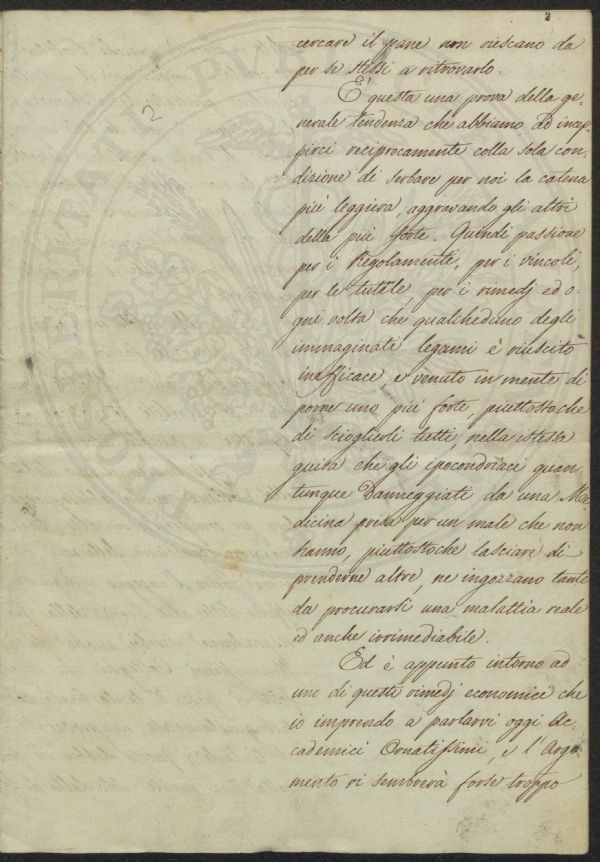 2
2
cercare il pane non riescano da
per se stessi a ritrovarlo.
È questa una prova della ge-
nerale tendenza che abbiamo ad incep-
pirci reciprocamente colla sola con-
dizione di serbare per noi la catena
più leggiera, aggravando gli altri
della più forte. Quindi passione
per i Regolamenti, per i vincoli,
per le tutele, per i rimedj ed o-
gni volta che qualcheduno degli
immaginati legami è riuscito
inefficace, è venuto in mente di
porne uno più forte, piuttostoche
di scioglierli tutti, nella istessa
guisa che gli ipocondriaci quan-
tunque danneggiati da una Me-
dicina presa per un male che non
hanno, piuttostoche lasciare di
prenderne altre, ne ingozzano tante
da procurarsi una malattia reale
ed anche irrimediabile.
Ed è appunto intorno ad
uno di questi rimedj economici che
io imprendo a parlarvi oggi Ac-
cademici Ornatissimi, e l'Argo-
mento vi sembrerà forse troppo
PROSPERITATI PUBL